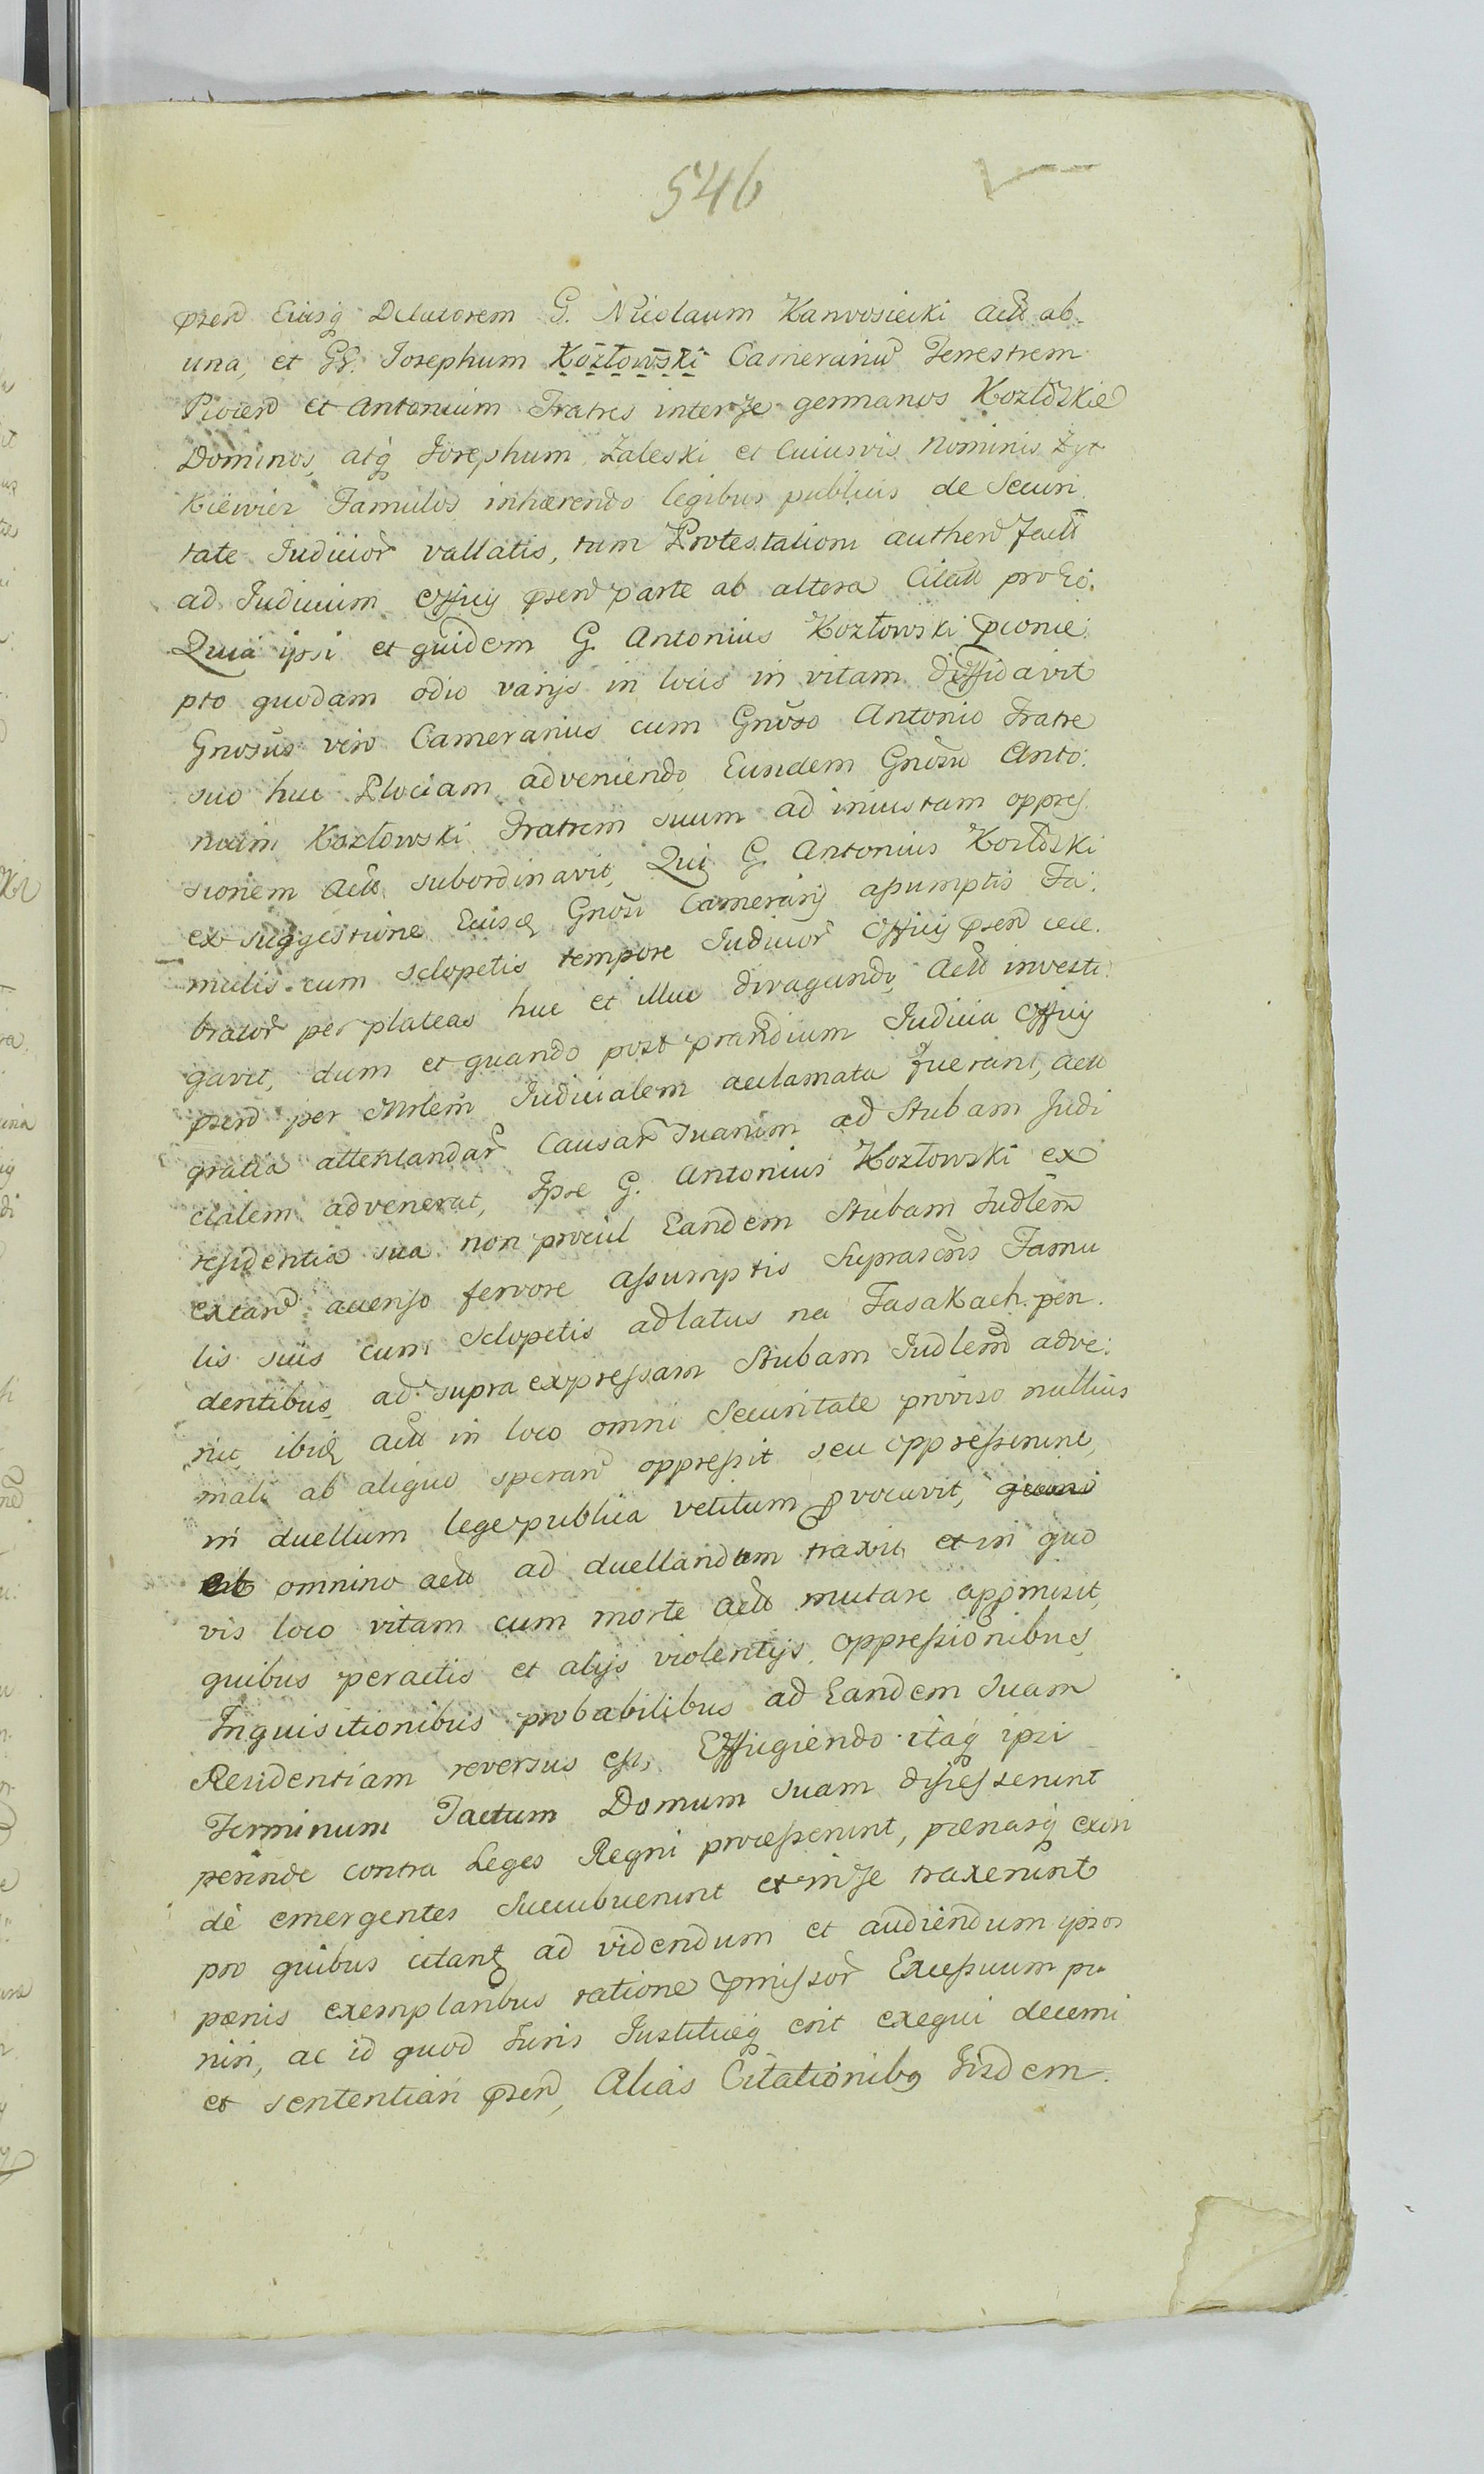 546
prsen Eiusq Delatorem G. Nicolaum Karwosiecki Actt ab
una, et GG. Josephum Kozłowski Cameranu Terrestrem
Pwien et Antonium Fratres inter se germanos Kozłoskie
Dominos, atq Josephum Zaleski et Cuiusvis Nominis Zyt
kiewicz Famulos inhærendo legibus publicis de Securi
tate Judicior vallatis, tum Protestationi authen fctt
ad Judicium Officij prsen parte ab altera Citatt pro Eo.
Quia ipsi et quidem G. Antonius Kozłowski
pro quodam odio varijs in locis in vitam diffidavit
Gnosus vero Cameranius cum Gnoso Antonio Fratre
suo huc Plociam adveniendo Eundem Gnosu Anto:
nium Kozłowski Fratrem suum ad iniustam oppres
sionem Actt subordinavit, Qui G. Antonius Kozłoski
ex suggestione Eiusd Gnosi Cameranij assumptis Fa:
mulis cum sclopetis tempore Judicior Officij prsen cele.
brator per plateas huc et illuc divagando, Actt investi:
gavit, dum et quando post prandium Judicia Officij
prsen per Mrlem Judicialem acclamata fuerant, actt
gratia attentandar Causar suarum ad Stubam Judi
cialem advenerat, Ipse G. Antonius Kozłowski ex
residentia sua non procul Eandem Stubam Judlem
extan accenso fervore assumptis suprascris Famu
lis suis cum sclopetis ad latus na Tasakach pen.
dentibus, ad supra expressam Stubam Judlem adve:
nit, ibiq actt in loco omni Securitate proviso nullius
mali ab aliquo speran oppressit seu oppresserunt,
in duellum lege publica vetitum provocavit,
et omnino actt ad duellandum traxit, et in quo
vis loco vitam cum morte actt mutare appromisit,
quibus peractis et alijs violentijs, oppressionibus,
Inquisitionibus probabilibus ad Eandem suam
Residentiam reversus est, Effugiendo itaq ipsi
Terminum Tactum Domum suam discesserunt
perinde contra Leges Regni processerunt, pœnasq exin
de emergentes succubuerunt et in se traxerunt
pro quibus citantr ad videndum et audiendum ipsos
pœnis exemplaribus ratione prmissor Excessuum pu
niri, ac id quod Juris Justitiæq erit exequi decerni
et sententiari prsen, Alias Citationibq Iisdem.